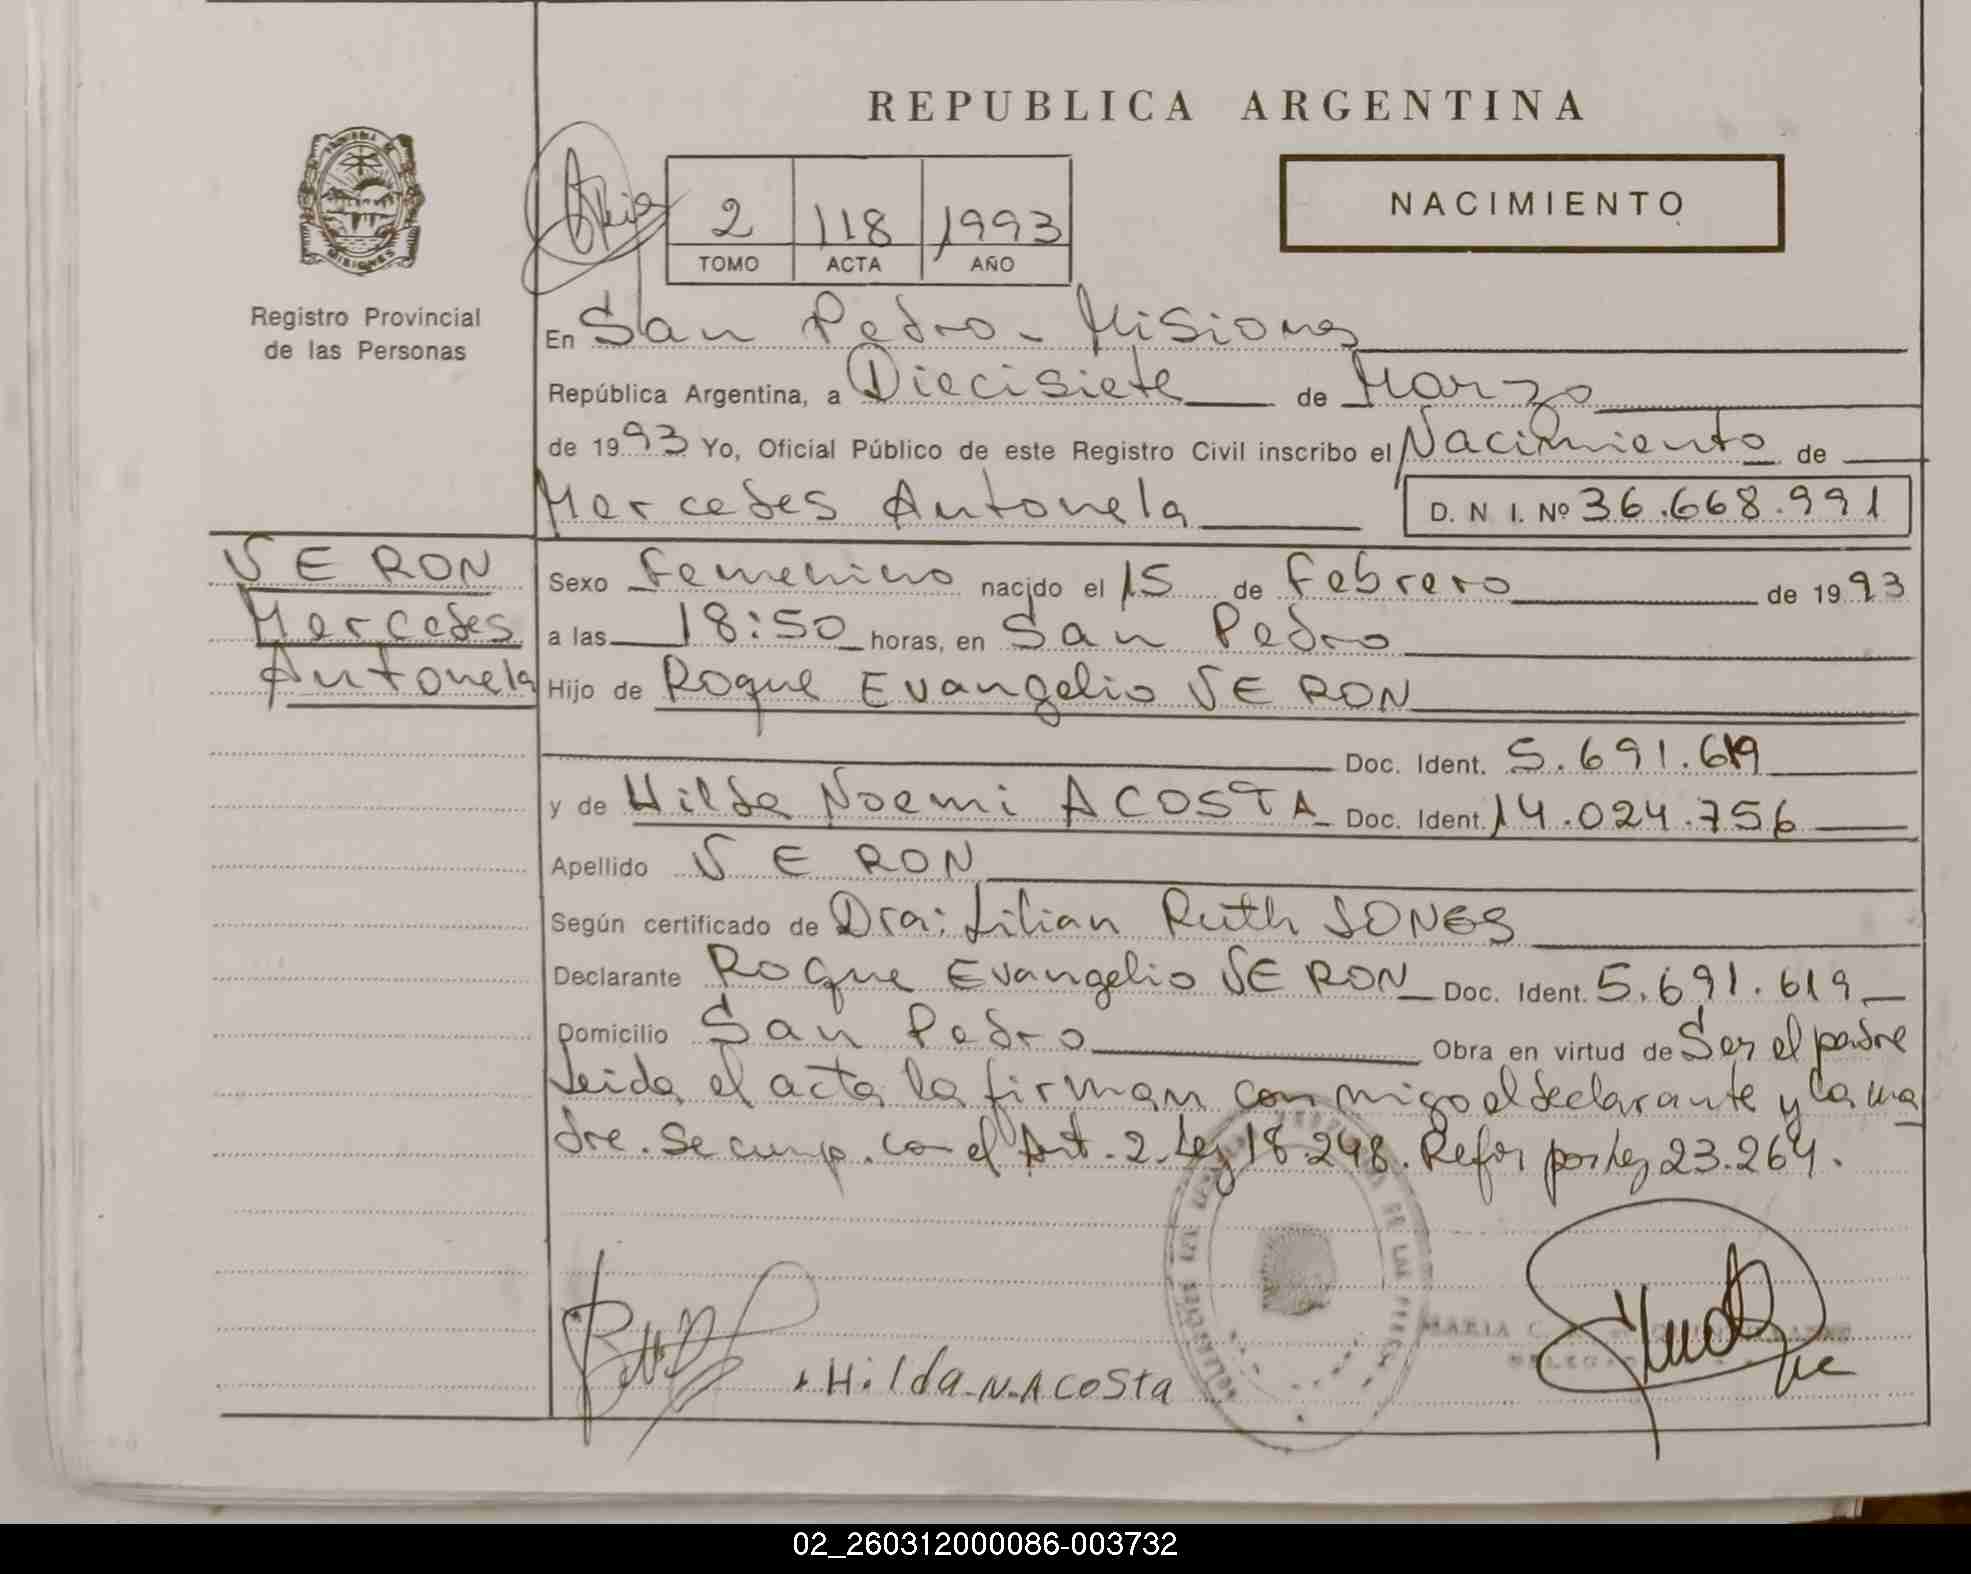 REPUBLICA ARGENTINA
NACIMIENTO
2 118 1993
TOMO ACTA AÑO
Registro Provincial
de las Personas
En San Pedro - Misiones
República Argentina, a Diecisiete de Marzo
de 1993 Yo, Oficial Público de este Registro Civil inscribo el Nacimiento de
Mercedes Antonela D. N I. Nº 36.668.991
VERON
Mercedes
Antonela
Sexo Femenino nacido el 15 de Febrero de 1993
a las 18:50 horas, en San Pedro
Hijo de Roque Evangelio VERON
Doc. Ident. 5.691.619
y de Hilda Noemi ACOSTA Doc. Ident. 14.024.756
Apellido VERON
Según certificado de Dra: Lilian Ruth JONES
Declarante Roque Evangelio VERON Doc. Ident. 5.691.619
Domicilio San Pedro Obra en virtud de Ser el padre
Leida el acta la firman conmigo el declarante y la ma
dre. Se cump. con el Art. 2. Ley 18.248. Refor por Ley 23.264.
MARIA C.
Hilda-N-Acosta
02_260312000086-003732